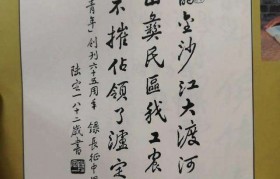 金沙江大渡河
山彝民區我工農
不摧佔領了瀘定
青年》創刊六十五周年 錄長征中
陸定一八十二歲書